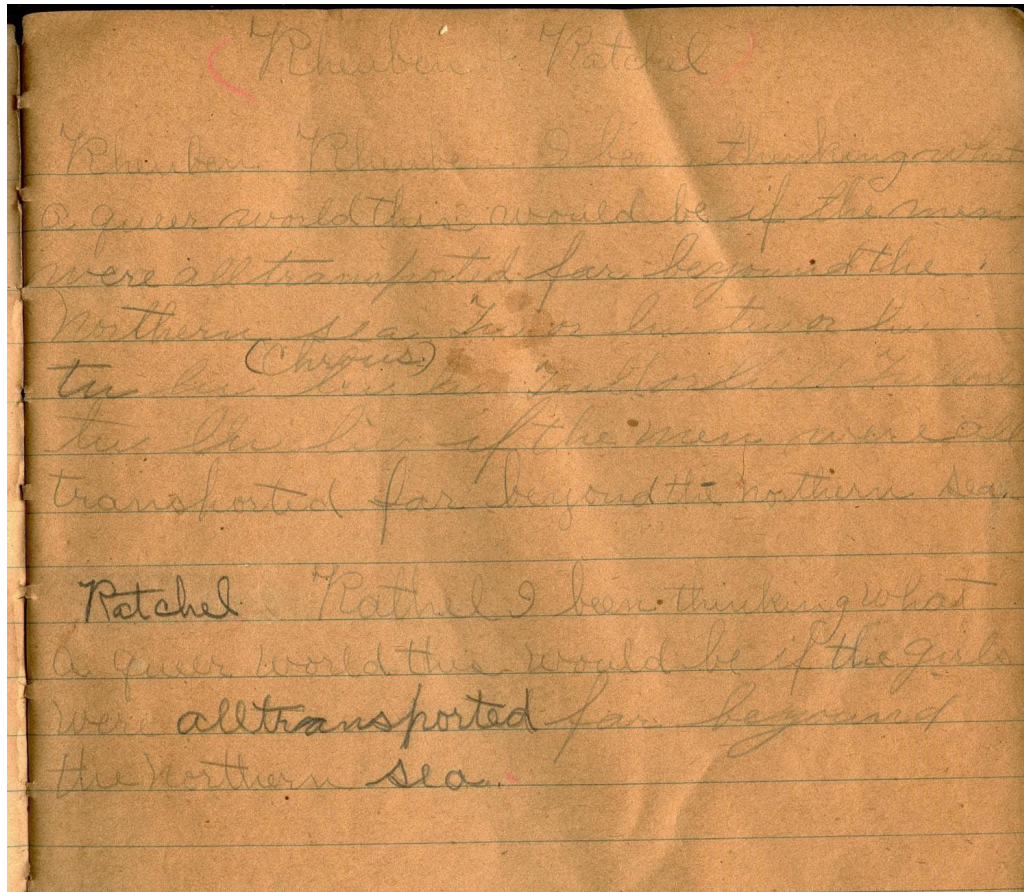 (Rheuben & Ratchel)
Rheuben Rheuben I been thinking what
a queer world this would be if the men
were all transported far beyound the
Northern sea Tu or lu tu or lu
(Chrous)
tu lu lu lu
tu lu lu if the men were all
transported far beyond the northern sea.
Ratchel Rathel I been thinking what
a queer world this would be if the girls
were all transported far beyound
the Northern sea.